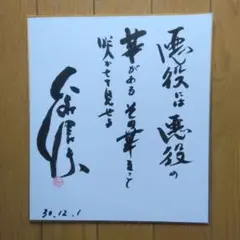 悪役は悪役の
華がある その華をこと
咲かせて見せる
30.12.1